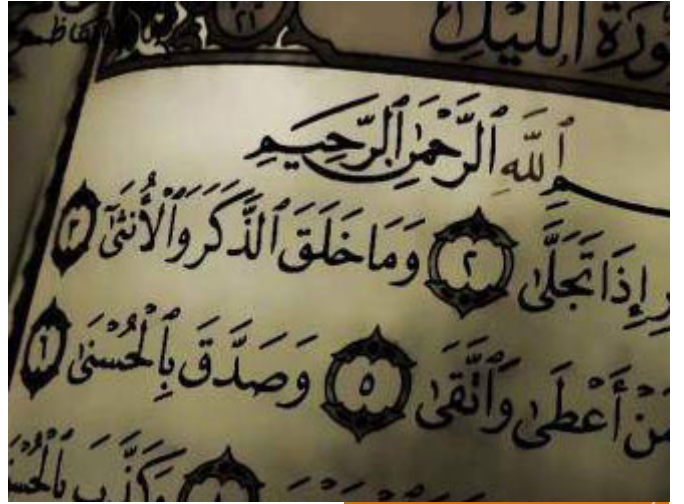 ٢١
ورة الليل
ٱللَّهِ ٱلرَّحْمَٰنِ ٱلرَّحِيمِ
رِ إِذَا تَجَلَّىٰ ٢ وَمَا خَلَقَ ٱلذَّكَرَ وَٱلْأُنثَىٰٓ ٣
مَنْ أَعْطَىٰ وَٱتَّقَىٰ ٥ وَصَدَّقَ بِٱلْحُسْنَىٰ ٦
وَكَذَّبَ بِٱلْحُسْ